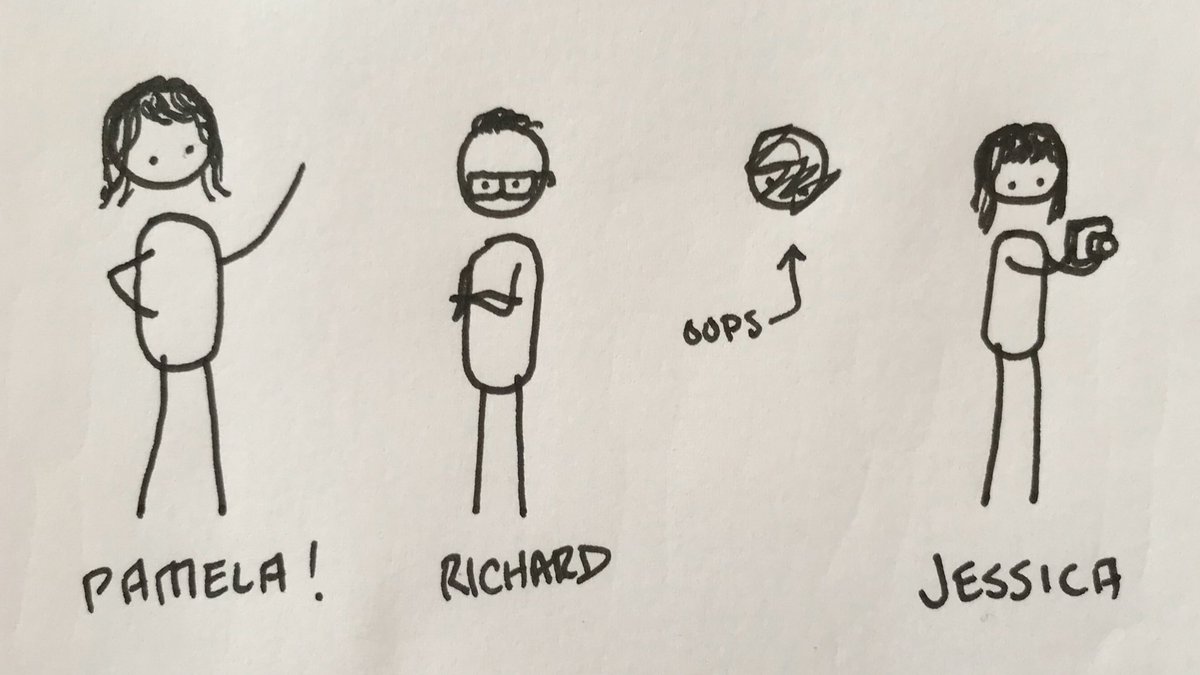 OOPS
PAMELA!
RICHARD
JESSICA